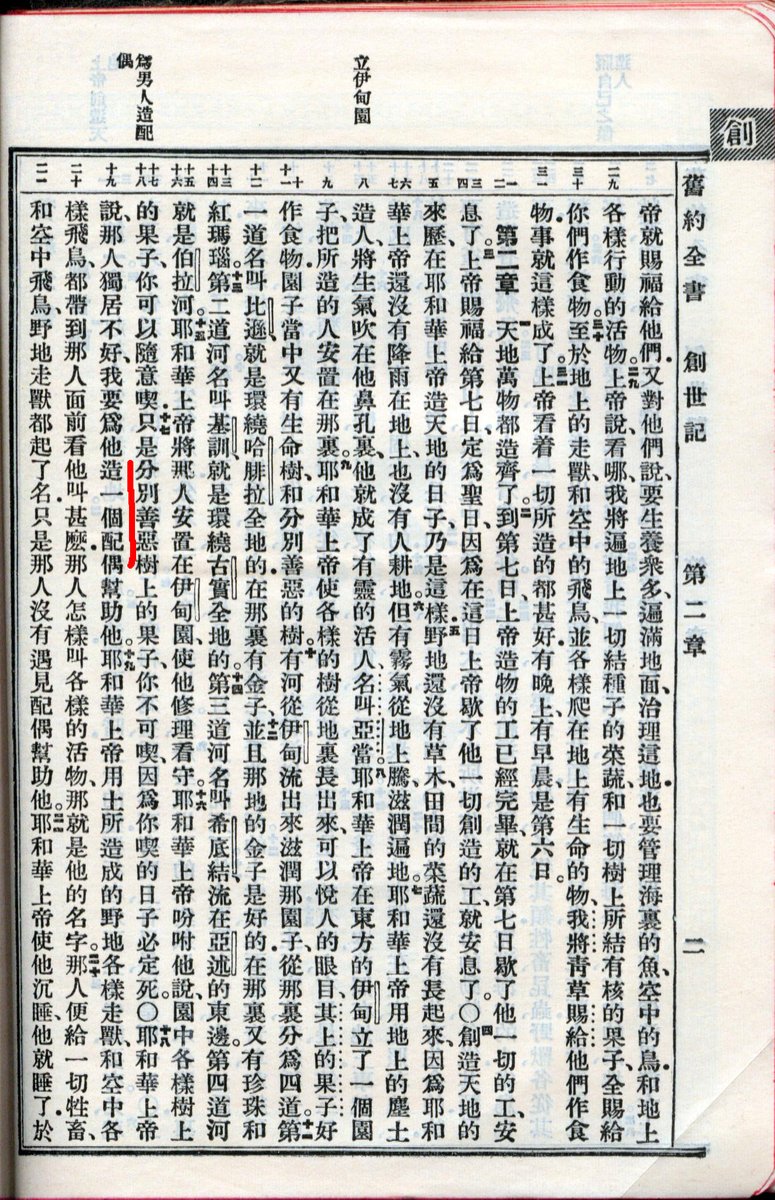 創
舊約全書 創世記 第二章 二
立伊甸園
爲男人造配
偶
帝就賜福給他們、又對他們說、要生養衆多、遍滿地面、治理這地、也要管理海裏的魚、空中的鳥、和地上
二九
各樣行動的活物。上帝說、看哪、我將遍地上一切結種子的菜蔬、和一切樹上所結有核的果子、全賜給
三十
你們作食物。至於地上的走獸、和空中的飛鳥、並各樣爬在地上有生命的物、我將靑草賜給他們作食
三一
物、事就這樣成了。上帝看着一切所造的都甚好、有晚上、有早晨、是第六日。
一
二
第二章 天地萬物都造齊了。到第七日、上帝造物的工已經完畢、就在第七日歇了他一切的工、安
三
四
息了。上帝賜福給第七日、定爲聖日、因爲在這日上帝歇了他一切創造的工、就安息了。〇創造天地的
五
來歷、在耶和華上帝造天地的日子、乃是這樣。野地還沒有草木、田間的菜蔬還沒有長起來、因爲耶和
六
七
華上帝還沒有降雨在地上、也沒有人耕地。但有霧氣從地上騰、滋潤遍地。耶和華上帝用地上的塵土
八
造人、將生氣吹在他鼻孔裏、他就成了有靈的活人、名叫亞當。耶和華上帝在東方的伊甸立了一個園
九
子、把所造的人安置在那裏。耶和華上帝使各樣的樹從地裏長出來、可以悅人的眼目、其上的果子好
十
十一
作食物、園子當中又有生命樹、和分別善惡的樹。有河從伊甸流出來滋潤那園子、從那裏分爲四道。第
十二
一道名叫比遜、就是環繞哈腓拉全地的、在那裏有金子、並且那地的金子是好的、在那裏又有珍珠和
十三
十四
紅瑪瑙。第二道河名叫基訓、就是環繞古實全地的。第三道河名叫希底結、流在亞述的東邊、第四道河
十五
十六
就是伯拉河。耶和華上帝將那人安置在伊甸園、使他修理看守。耶和華上帝吩咐他說、園中各樣樹上
十七
十八
的果子、你可以隨意喫。只是分別善惡樹上的果子、你不可喫、因爲你喫的日子必定死。〇耶和華上帝
十九
說、那人獨居不好、我要爲他造一個配偶幫助他。耶和華上帝用土所造成的野地各樣走獸、和空中各
二十
樣飛鳥、都帶到那人面前、看他叫甚麽、那人怎樣叫各樣的活物、那就是他的名字。那人便給一切牲畜、
二一
和空中飛鳥、野地走獸都起了名、只是那人沒有遇見配偶幫助他。耶和華上帝使他沉睡、他就睡了、於